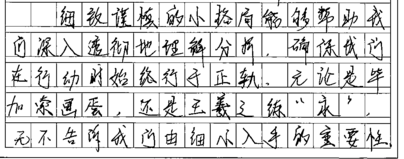 细致谨慎的小格局能够帮助我
们深入透彻地理解分析，确保我们
在行动时始终行于正轨。无论是毕
加索画蛋，还是王羲之练“永”，
无不告诉我们由细小入手的重要性